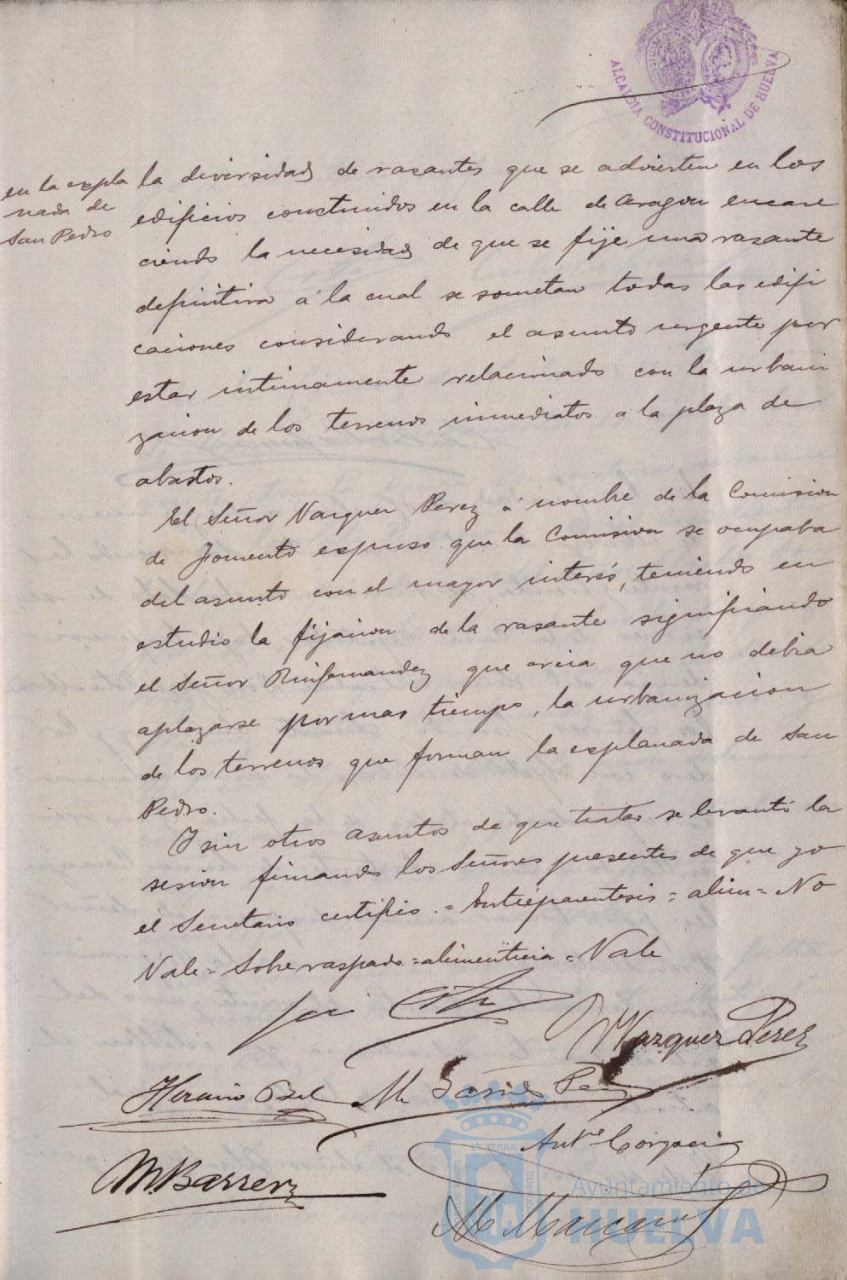 ALCALDIA CONSTITUCIONAL DE HUELVA
en la expla
nada de
San Pedro
la diversidad de rasantes que se advierten en los
edificios construidos en la calle de Aragon encare
ciendo la necesidad de que se fije una rasante
definitiva á la cual se sometan todas las edifi
caciones considerando el asunto urgente por
estar intimamente relacionado con la urbani
zacion de los terrenos inmediatos a la plaza de
abastos.
El Señor Vazquez Perez á nombre de la Comision
de Fomento expuso que la Comision se ocupaba
del asunto con el mayor interés, teniendo en
estudio la fijacion de la rasante significando
el Señor que creia que no debia
aplazarse por mas tiempo, la urbanizacion
de los terrenos que forman la explanada de San
Pedro.
Y sin otros asuntos de que tratar se levantó la
sesion firmando los Señores presentes de que yo
el Secretario certifico.=Entreparentesis=alim=No
Vale=Sobre raspado=alimenticia=Vale
Vazquez Perez
M. Garcia
M. Barrera
Ayuntamiento de
HUELVA